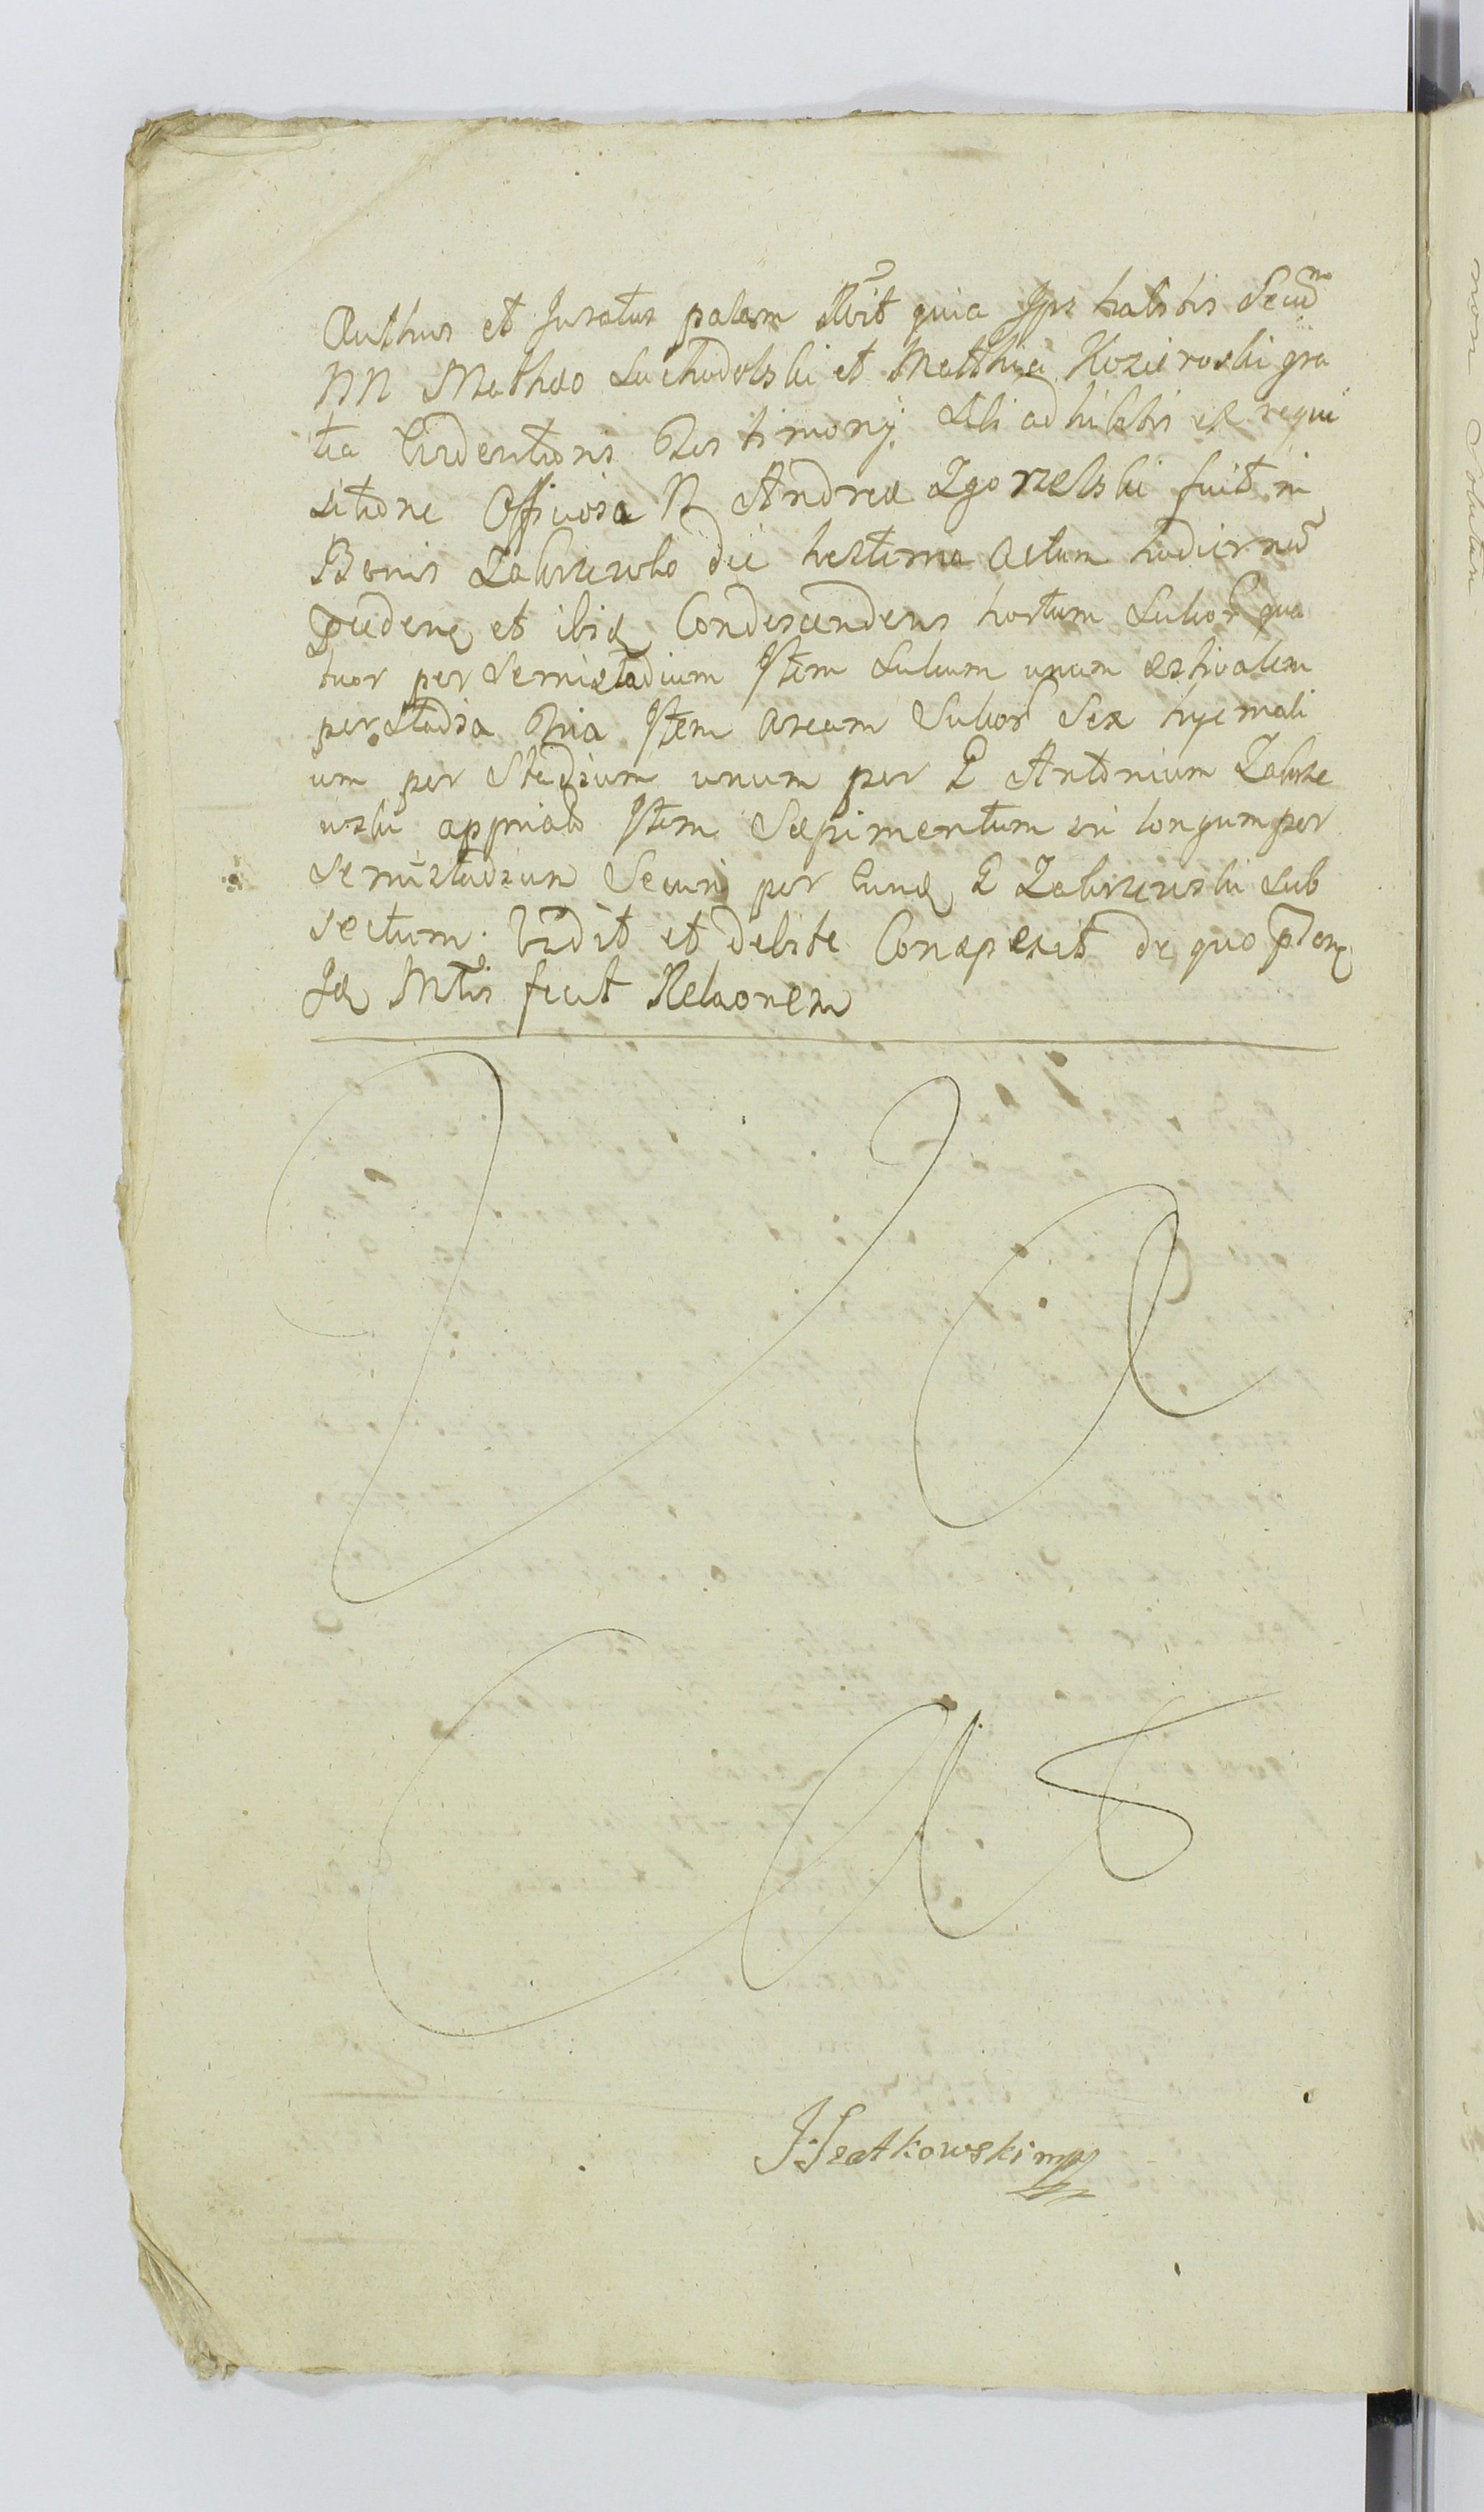 Authus et Juratus palam Rvit quia Ips habitis Secũ
NN Mathæo Suchodolski et Matthia Kozieroski gra
tia Evidentioris Testimonÿ Sibi adhibitis ex requi
sitione Officiosa N Andreæ Zgorzelski fuit in
Bonis Zakrzewko die hesterna actum hodiernũ
præceden et ibiq Condescendens hortum Sulcor qua
tuor per Semistadium Item Sulcum unum æstivalem
per Stadia Tria Item aream Sulcor Sex hyemali
um per Stadium unum per G Antonium Zakrze
wski appriato Item Sæpimentum in longum per
Semistadium Securi per Eund G Zakrzewski Sub
sectum Vidit et debite Conspexit de quo
Id Mtis fecit Relaonem
JSzatkowski mp